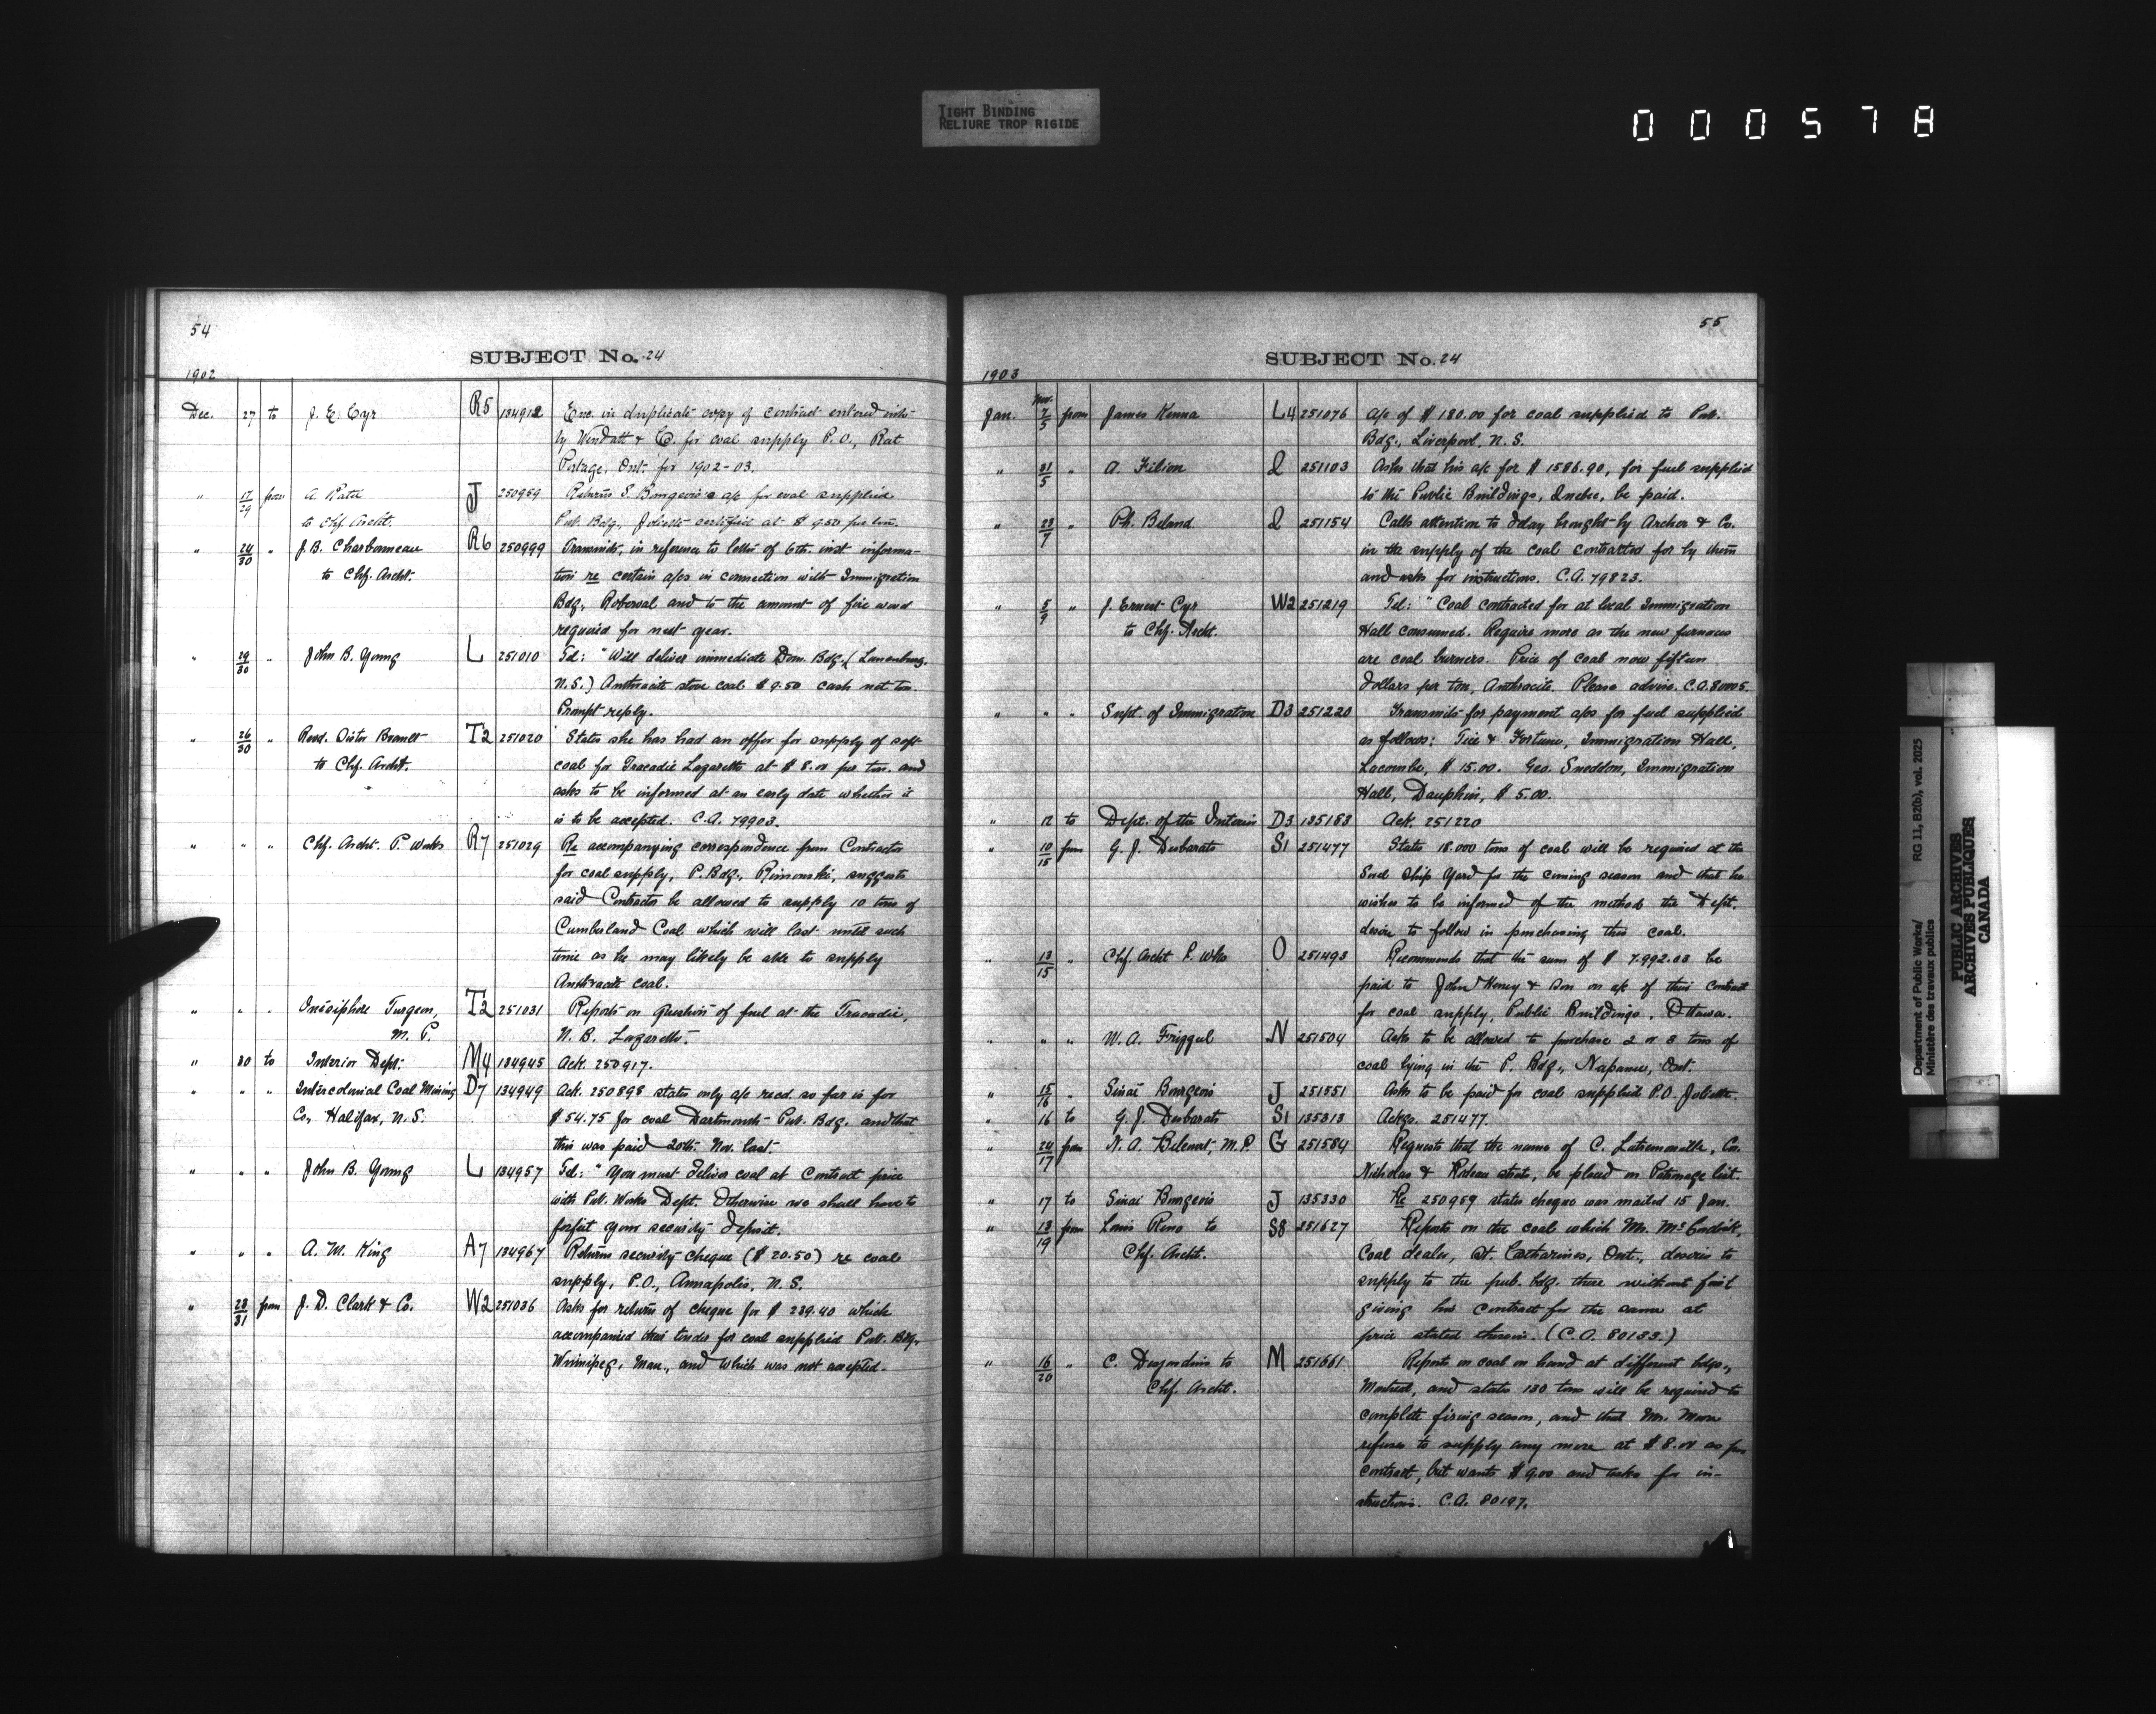 TIGHT BINDING
RELIURE TROP RIGIDE
000578
54
SUBJECT No. 24
1902
Dec. 27 to J. E. Cyr R5 134912 Enc. in duplicate copy of contract entered into
by Windatt & Co. for coal supply P.O., Rat
Portage, Ont. for 1902-03.
" 17/29 from A. Paté J 250959 Returns S. Bourgeois's a/c for coal supplied
to Chf. Archt. Pub. Bdg., Joliette certified at $9.50 per ton.
" 24/30 " J. B. Charbonneau R6 250999 Transmits, in reference to letter of 6th. inst informa-
to Chf. Archt. tion re certain a/cs in connection with Immigration
Bdg., Roberval and to the amount of fire wood
required for next year.
" 29/30 " John B. Young L 251010 Tel: "Will deliver immediate Dom. Bdg. (Lunenburg,
N.S.) Anthracite stove coal $9.50 cash net ton.
Prompt reply.
" 26/30 " Revd. Sister Brault T2 251020 States she has had an offer for supply of soft
to Chf. Archt. coal for Tracadie Lazaretto at $8.00 per ton. and
asks to be informed at an early date whether it
is to be accepted. C.A. 79903.
" " " Chf. Archt. P. Works R7 251029 Re accompanying correspondence from Contractor
for coal supply, P. Bdg., Rimouski, suggests
said Contractor be allowed to supply 10 tons of
Cumberland Coal which will last until such
time as he may likely be able to supply
Anthracite coal.
" " " Onésiphore Turgeon, T2 251031 Reports on question of fuel at the Tracadie,
M. P. N. B. Lazaretto.
" 30 to Interior Dept. M4 134945 Ack. 250917.
" " " Intercolonial Coal Mining D7 134949 Ack. 250898 states only a/c recd. so far is for
Co., Halifax, N.S. $54.75 for coal Dartmouth Pub. Bdg. and that
this was paid 20th. Nov. last.
" " " John B. Young L 134957 Tel: "You must deliver coal at Contract price
with Pub. Works Dept. Otherwise we shall have to
forfeit your security deposit.
" " " A. M. King A7 134967 Returns security cheque ($20.50) re coal
supply, P.O., Annapolis, N. S.
" 28/31 from J. D. Clark & Co. W2 251036 Asks for return of cheque for $239.40 which
accompanied their tender for coal supplied Pub. Bdg.,
Winnipeg, Man., and which was not accepted.
55
SUBJECT No. 24
1903
Jan. Nov. 7/5 from James Kenna L4 251076 a/c of $180.00 for coal supplied to Pub.
Bdg., Liverpool, N. S.
" 31/5 " A. Filion Q 251103 Asks that his a/c for $1586.90, for fuel supplied
to the Public Buildings, Quebec, be paid.
" 23/7 " Ph. Beland Q 251154 Calls attention to delay brought by Archer & Co.
in the supply of the coal contracted for by them
and asks for instructions. C.A. 79823.
" 5/9 " J. Ernest Cyr W2 251219 Tel: "Coal contracted for at local Immigration
to Chf. Archt. Hall consumed. Require more as the new furnaces
are coal burners. Price of coal now fifteen
dollars per ton, Anthracite. Please advise. C.A. 80005.
" " " Supt. of Immigration D3 251220 Transmits for payment a/cs for fuel supplied
as follows: Tice & Fortune, Immigration Hall,
Lacombe, $15.00. Geo. Sneddon, Immigration
Hall, Dauphin, $5.00.
" 12 to Dept. of the Interior D3 135183 Ack. 251220
" 10/15 from G. J. Desbarats S1 251477 States 18.000 tons of coal will be required at the
Sorel Ship Yard for the coming season and that he
wishes to be informed of the methods the Dept.
desire to follow in purchasing this coal.
" 13/15 " Chf. Archt P. Wks O 251493 Recommends that the sum of $7.992.03 be
paid to John Heney & Son on a/c of their contract
for coal supply, Public Buildings, Ottawa.
" " " W. A. N 251504 Asks to be allowed to purchase 2 or 3 tons of
coal lying in the P. Bdg., Napanee, Ont.
" 15/16 " Sinai Bourgeois J 251551 Asks to be paid for coal supplied P.O. Joliette.
" 16 to G. J. Desbarats S1 135313 Ackgs. 251477.
" 24/17 from N. A. Belcourt, M.P. G 251584 Requests that the name of C. Latremouille, Cor.
Nicholas & Rideau streets, be placed on Patronage list.
" 17 to Sinai Bourgeois J 135330 Re 250959 states cheque was mailed 15 Jan.
" 13/19 from Louis to S8 251627 Reports on the coal which Mr. McCordick,
Chf. Archt. Coal dealer, St. Catharines, Ont., desires to
supply to the pub. bdg. there without first
giving his contract for the same at
price stated therein. (C.A. 80133.)
" 16/20 " C. Desjardins to M 251661 Reports on coal on hand at different bdgs.,
Chf. Archt. Montreal, and states 130 tons will be required to
complete firing season, and that Mr. Moore
refuses to supply any more at $8.00 as per
contract, but wants $9.00 and asks for in-
structions. C.A. 80197.
Department of Public Works/
Ministère des travaux publics
RG 11, B2(b), vol. 2025
PUBLIC ARCHIVES
ARCHIVES PUBLIQUES
CANADA